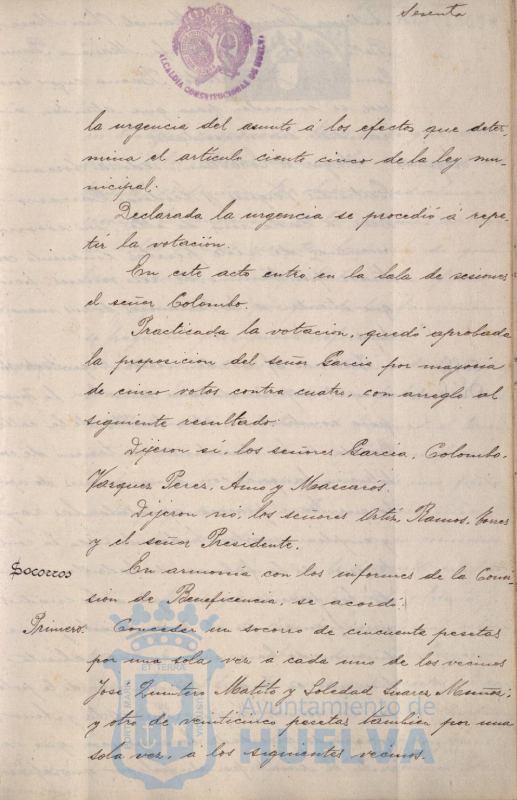 Sesenta
ALCALDIA CONSTITUCIONAL DE HUELVA
la urgencia del asunto á los efectos que deter-
mina el artículo ciento cinco de la ley mu-
nicipal.
Declarada la urgencia se procedió á repe-
tir la votación.
En este acto entró en la sala de sesiones
el señor Colombo.
Practicada la votación, quedó aprobada
la proposicion del señor Garcia por mayoría
de cinco votos contra cuatro, con arreglo al
siguiente resultado:
Dijeron sí, los señores Garcia, Colombo,
Vazquez Perez, Amo y Mascarós.
Dijeron nó, los señores Ortiz, Ramos, Torres
y el señor Presidente.
Socorros
En armonía con los informes de la Comi-
sión de Beneficencia, se acordó:
Primero.
Conceder un socorro de cincuenta pesetas
por una sola vez á cada uno de los vecinos
José Quintero Matito y Soledad Suarez Muñoz;
y otro de veinticinco pesetas tambien por una
sola vez, á los siguientes vecinos.
PORTUS MARIS ET TERRAE CUSTODIA
Ayuntamiento de
HUELVA